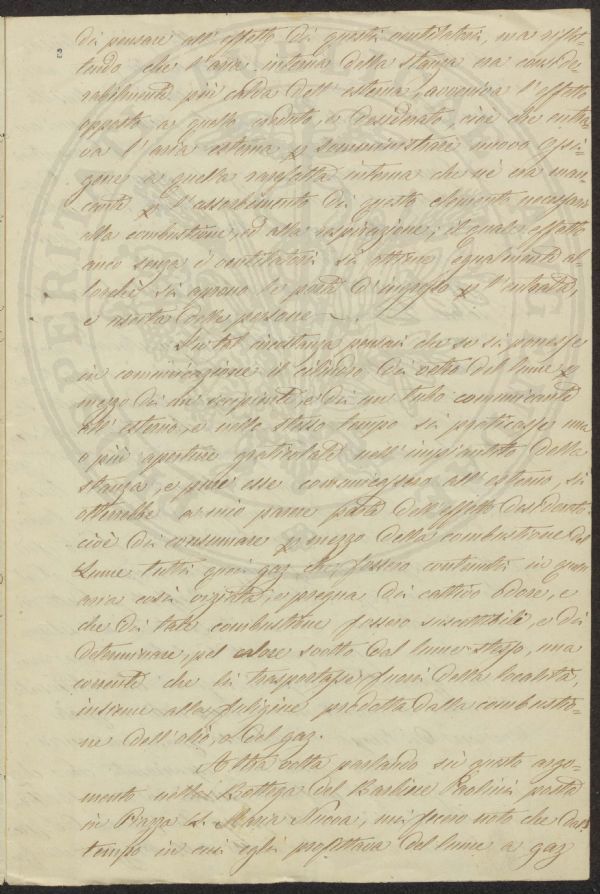 di pensare all'effetto di questi ventilatori, ma riflet-
tendo che l'aria interna della stanza era conside-
rabilmente più calda dell'esterna, avveniva l'effetto
opposto a quello creduto, e desiderato, cioè che entra-
va l'aria esterna p somministrare nuovo ossi-
gene a quella rarefatta interna che n'era man-
cante p l'assorbimento di questo elemento necessario
alla combustione, ed alla respirazione; il quale effetto
anco senza i ventilatori si ottiene egualmente al-
lorchè si aprono le porte d'ingresso p l'entrata,
e uscita delle persone.
In tal circostanza pensai che se si ponesse
in comunicazione il cilindro di vetro del lume p
mezzo di un recipiente e di un tubo comunicante
all'esterno, e nello stesso tempo si praticasse una
o più aperture graticolate nell'impiantito della
stanza, e pure esse comunicassero all'esterno, si
otterrebbe a mio parere parte dell'effetto desiderato
cioè di consumare p mezzo della combustione del
Lume tutti quei gaz che fossero contenuti in quest'
aria così viziata, e pregna di cattivo odore, e
che di tale combustione fossero suscettibili, e di
determinare, pel calore svolto dal lume stesso, una
corrente che li trasportasse fuori della località,
insieme alla fuligine prodotta dalla combustio-
ne dell'olio, o del gaz.
Altra volta parlando su questo argo-
mento nella Bottega del Barbiere Paolini posta
in Piazza S. Maria Nuova, mi fecero noto che dal
tempo in cui egli profittava del lume a gaz
PERITALE